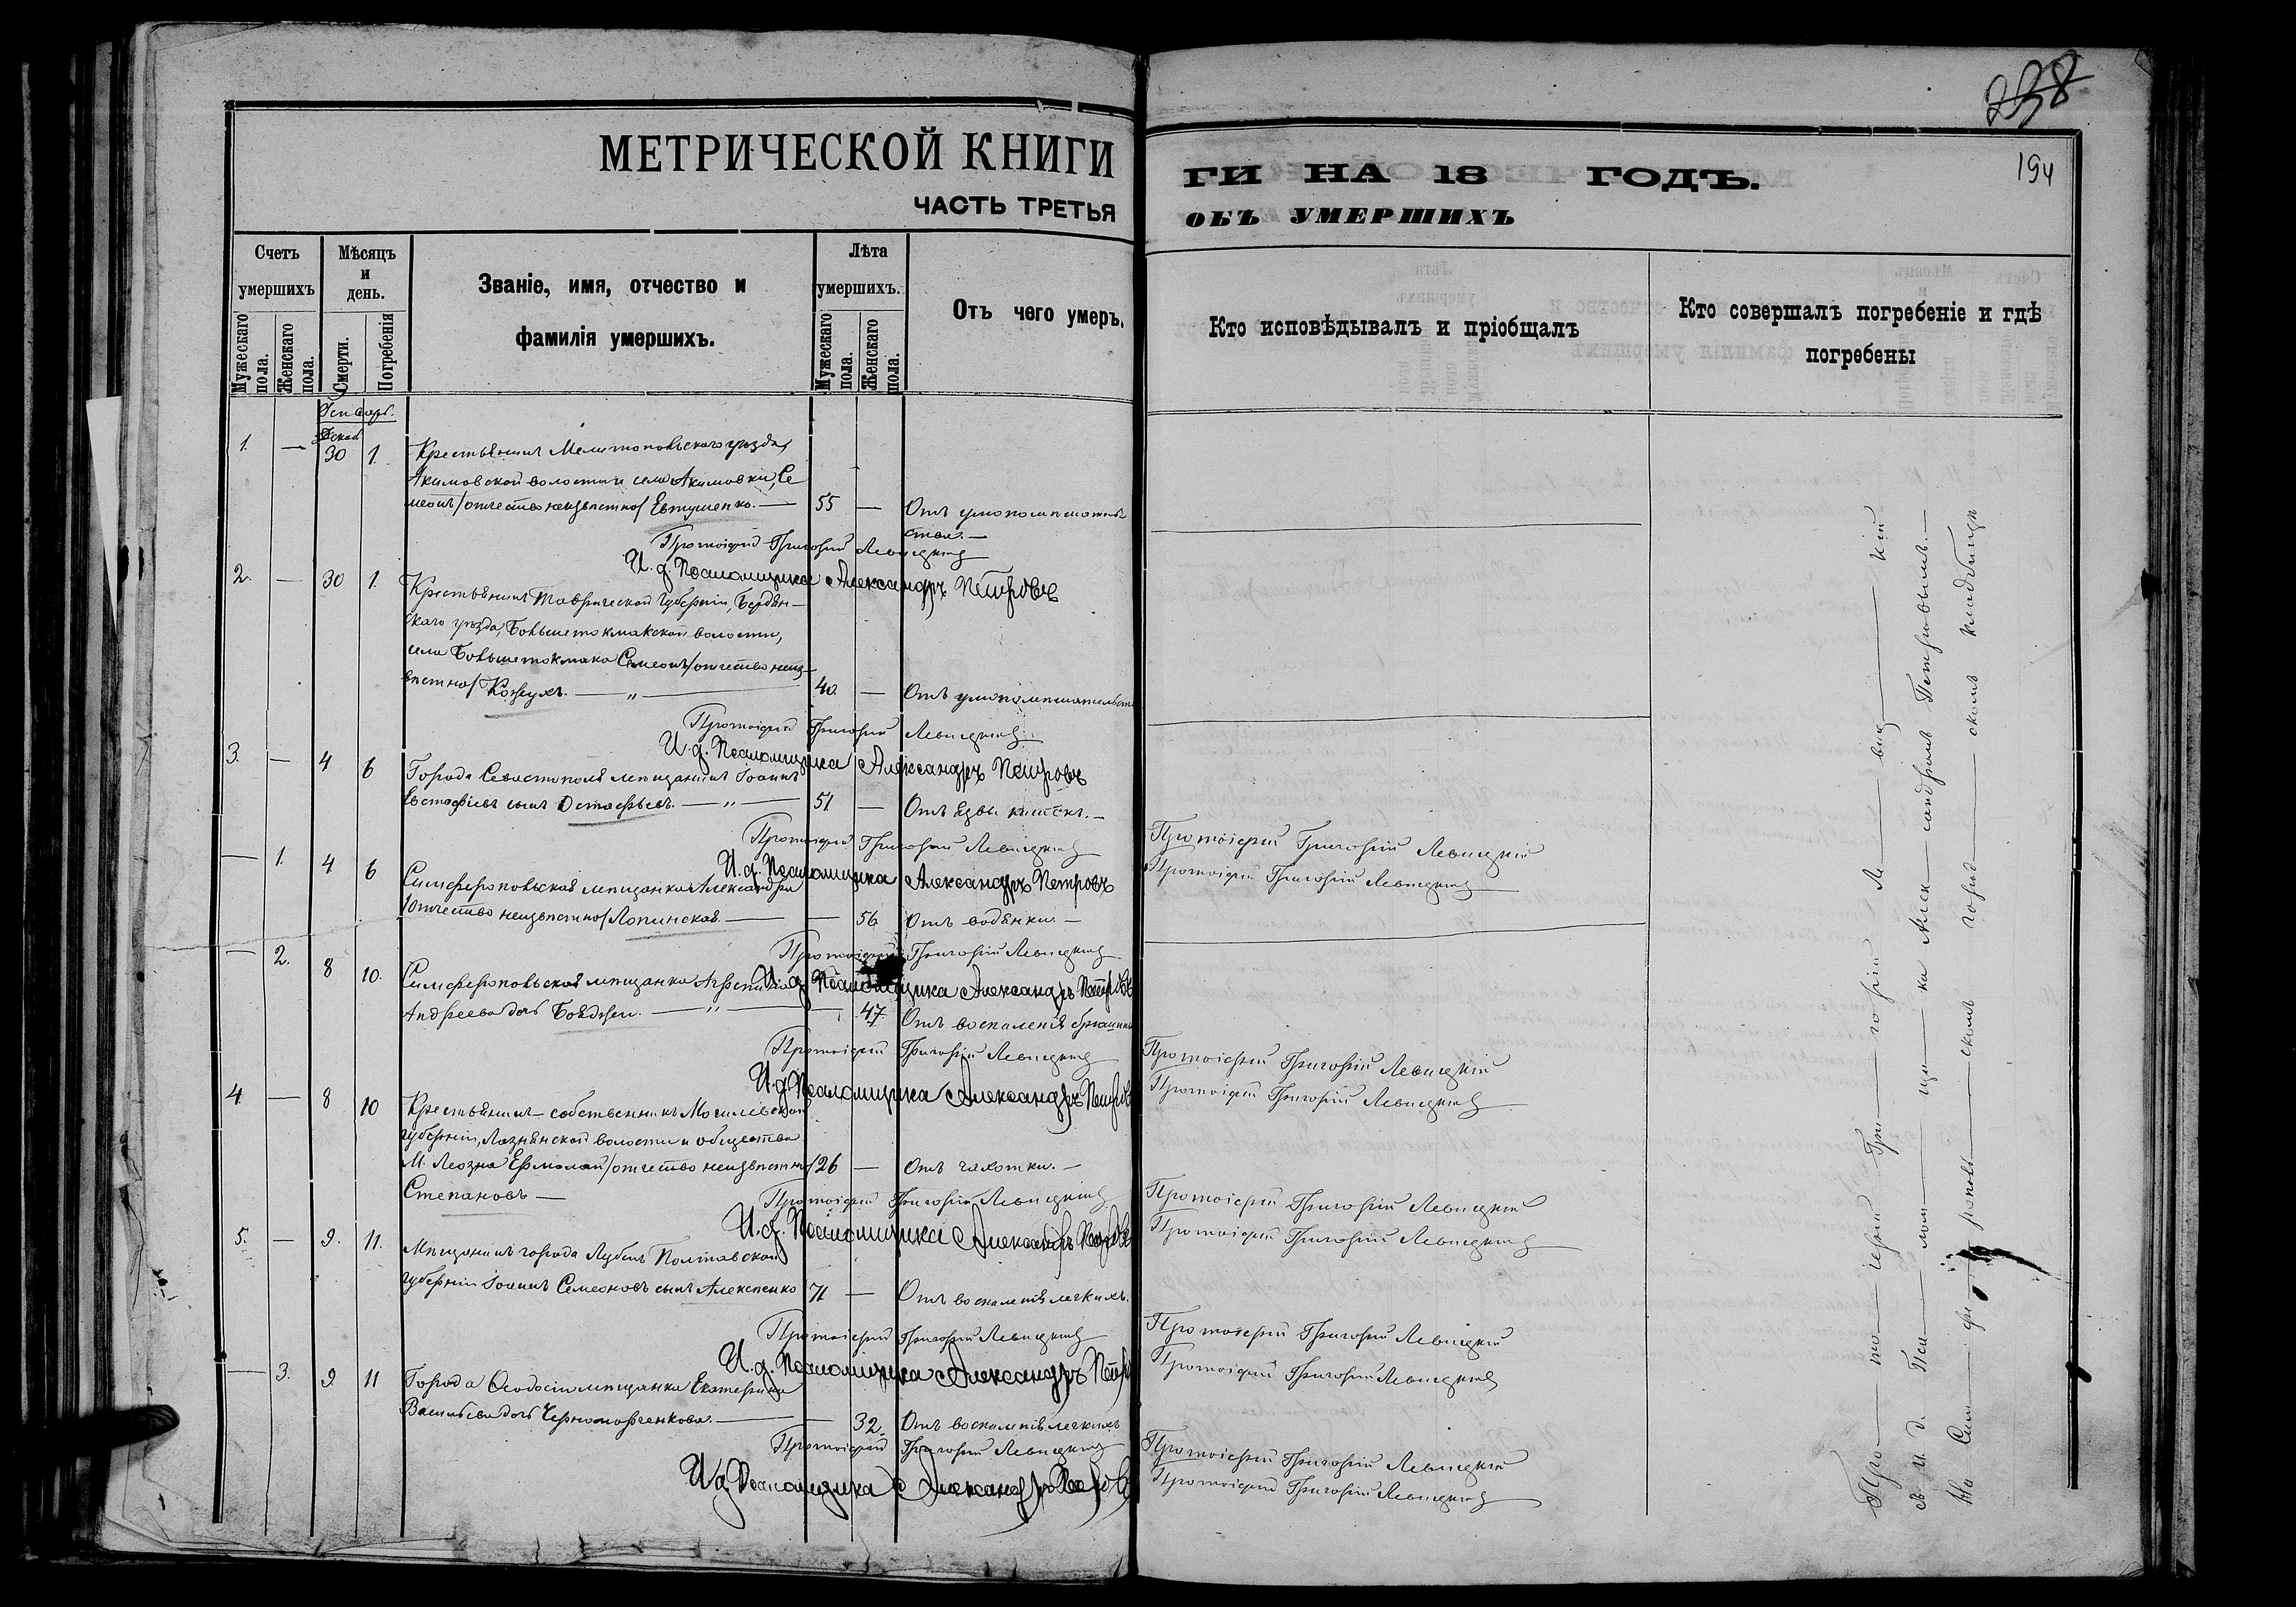 238
194
МЕТРИЧЕСКОЙ КНИГИ
ГИ НА 18 ГОДЪ.
ЧАСТЬ ТРЕТЬЯ
ОБЪ УМЕРШИХЪ
Счетъ умершихъ
Мужескаго пола.
Женскаго пола.
Мѣсяцъ и день.
Смерти.
Погребенія
Званіе, имя, отчество и
фамилія умершихъ.
Лѣта умершихъ.
Мужескаго пола.
Женскаго пола.
Отъ чего умеръ.
Кто исповѣдывалъ и пріобщалъ
Кто совершалъ погребеніе и гдѣ
погребены
Генварь.
Декаб
1. — 30 1. Крестьянинъ Мелитопольскаго уѣзда,
Акимовской волости и села Акимовки, Се
меонъ /отчество неизвѣстно/ Евтушенко. — 55 — Отъ умопомѣшатель
ства. —
Протоіерей Григорій Левицкій
И. д. Псаломщика Александръ Петровъ
2. — 30 1. Крестьянинъ Таврической губерніи, Бердян—
скаго уѣзда, Большетокмакской волости,
села Большетокмака Симеонъ /отчество неиз—
вѣстно/ Кожухъ. — „ — 40. — Отъ умопомѣшательст
Протоіерей Григорій Левицкій
И. д. Псаломщика Александръ Петровъ
3. — 4 6 Города Севастополя мѣщанинъ Іоаннъ
Евстафіевъ сынъ Остафьевъ. — „ — 51 — Отъ язвы кишекъ. —
Протоіерей Григорій Левицкій
И. д. Псаломщика Александръ Петровъ
Протоіерей Григорій Левицкій
Протоіерей Григорій Левицкій
— 1. 4 6 Симферопольская мѣщанка Александра
/отчество неизвѣстно/ Лопинская. — — 56 Отъ водянки. —
Протоіерей Григорій Левицкій
И. д. Псаломщика Александръ Петровъ
— 2. 8 10. Симферопольская мѣщанка
Андреева дочь — „ — — 47. Отъ воспаленія брюшины
Протоіерей Григорій Левицкій
И. д. Псаломщика Александръ Петровъ
Протоіерей Григорій Левицкій
Протоіерей Григорій Левицкій
4. — 8 10 Крестьянинъ — собственникъ Могилевской
губерніи, Лознянской волости и общества
М. Леозна Ермолай /отчество неизвѣстно/ 26 — Отъ чахотки. —
Степановъ —
Протоіерей Григорій Левицкій
И. д. Псаломщика Александръ Петровъ
Протоіерей Григорій Левицкій
Протоіерей Григорій Левицкій
5. — 9. 11. Мѣщанинъ города Лубенъ Полтавской
губерніи Іоаннъ Семеоновъ сынъ Алексеенко 71 — Отъ воспаленія легкихъ.
Протоіерей Григорій Левицкій
И. д. Псаломщика Александръ Петровъ
Протоіерей Григорій Левицкій
Протоіерей Григорій Левицкій
— 3. 9 11 Города Ѳеодосіи мѣщанка Екатерина
Васильева дочь Черноморченкова. — — 32. Отъ воспаленія легкихъ
Протоіерей Григорій Левицкій
И. д. Псаломщика Александръ Петровъ
Протоіерей Григорій Левицкій
Протоіерей Григорій Левицкій
Про — то — іерей Гри — горій Ле — виц — кій
съ И. д. Пса — лом — щи — ка Алек — сандромъ Петровымъ. —
На Сим — фе — рополь — скомъ город — скомъ кладбищѣ